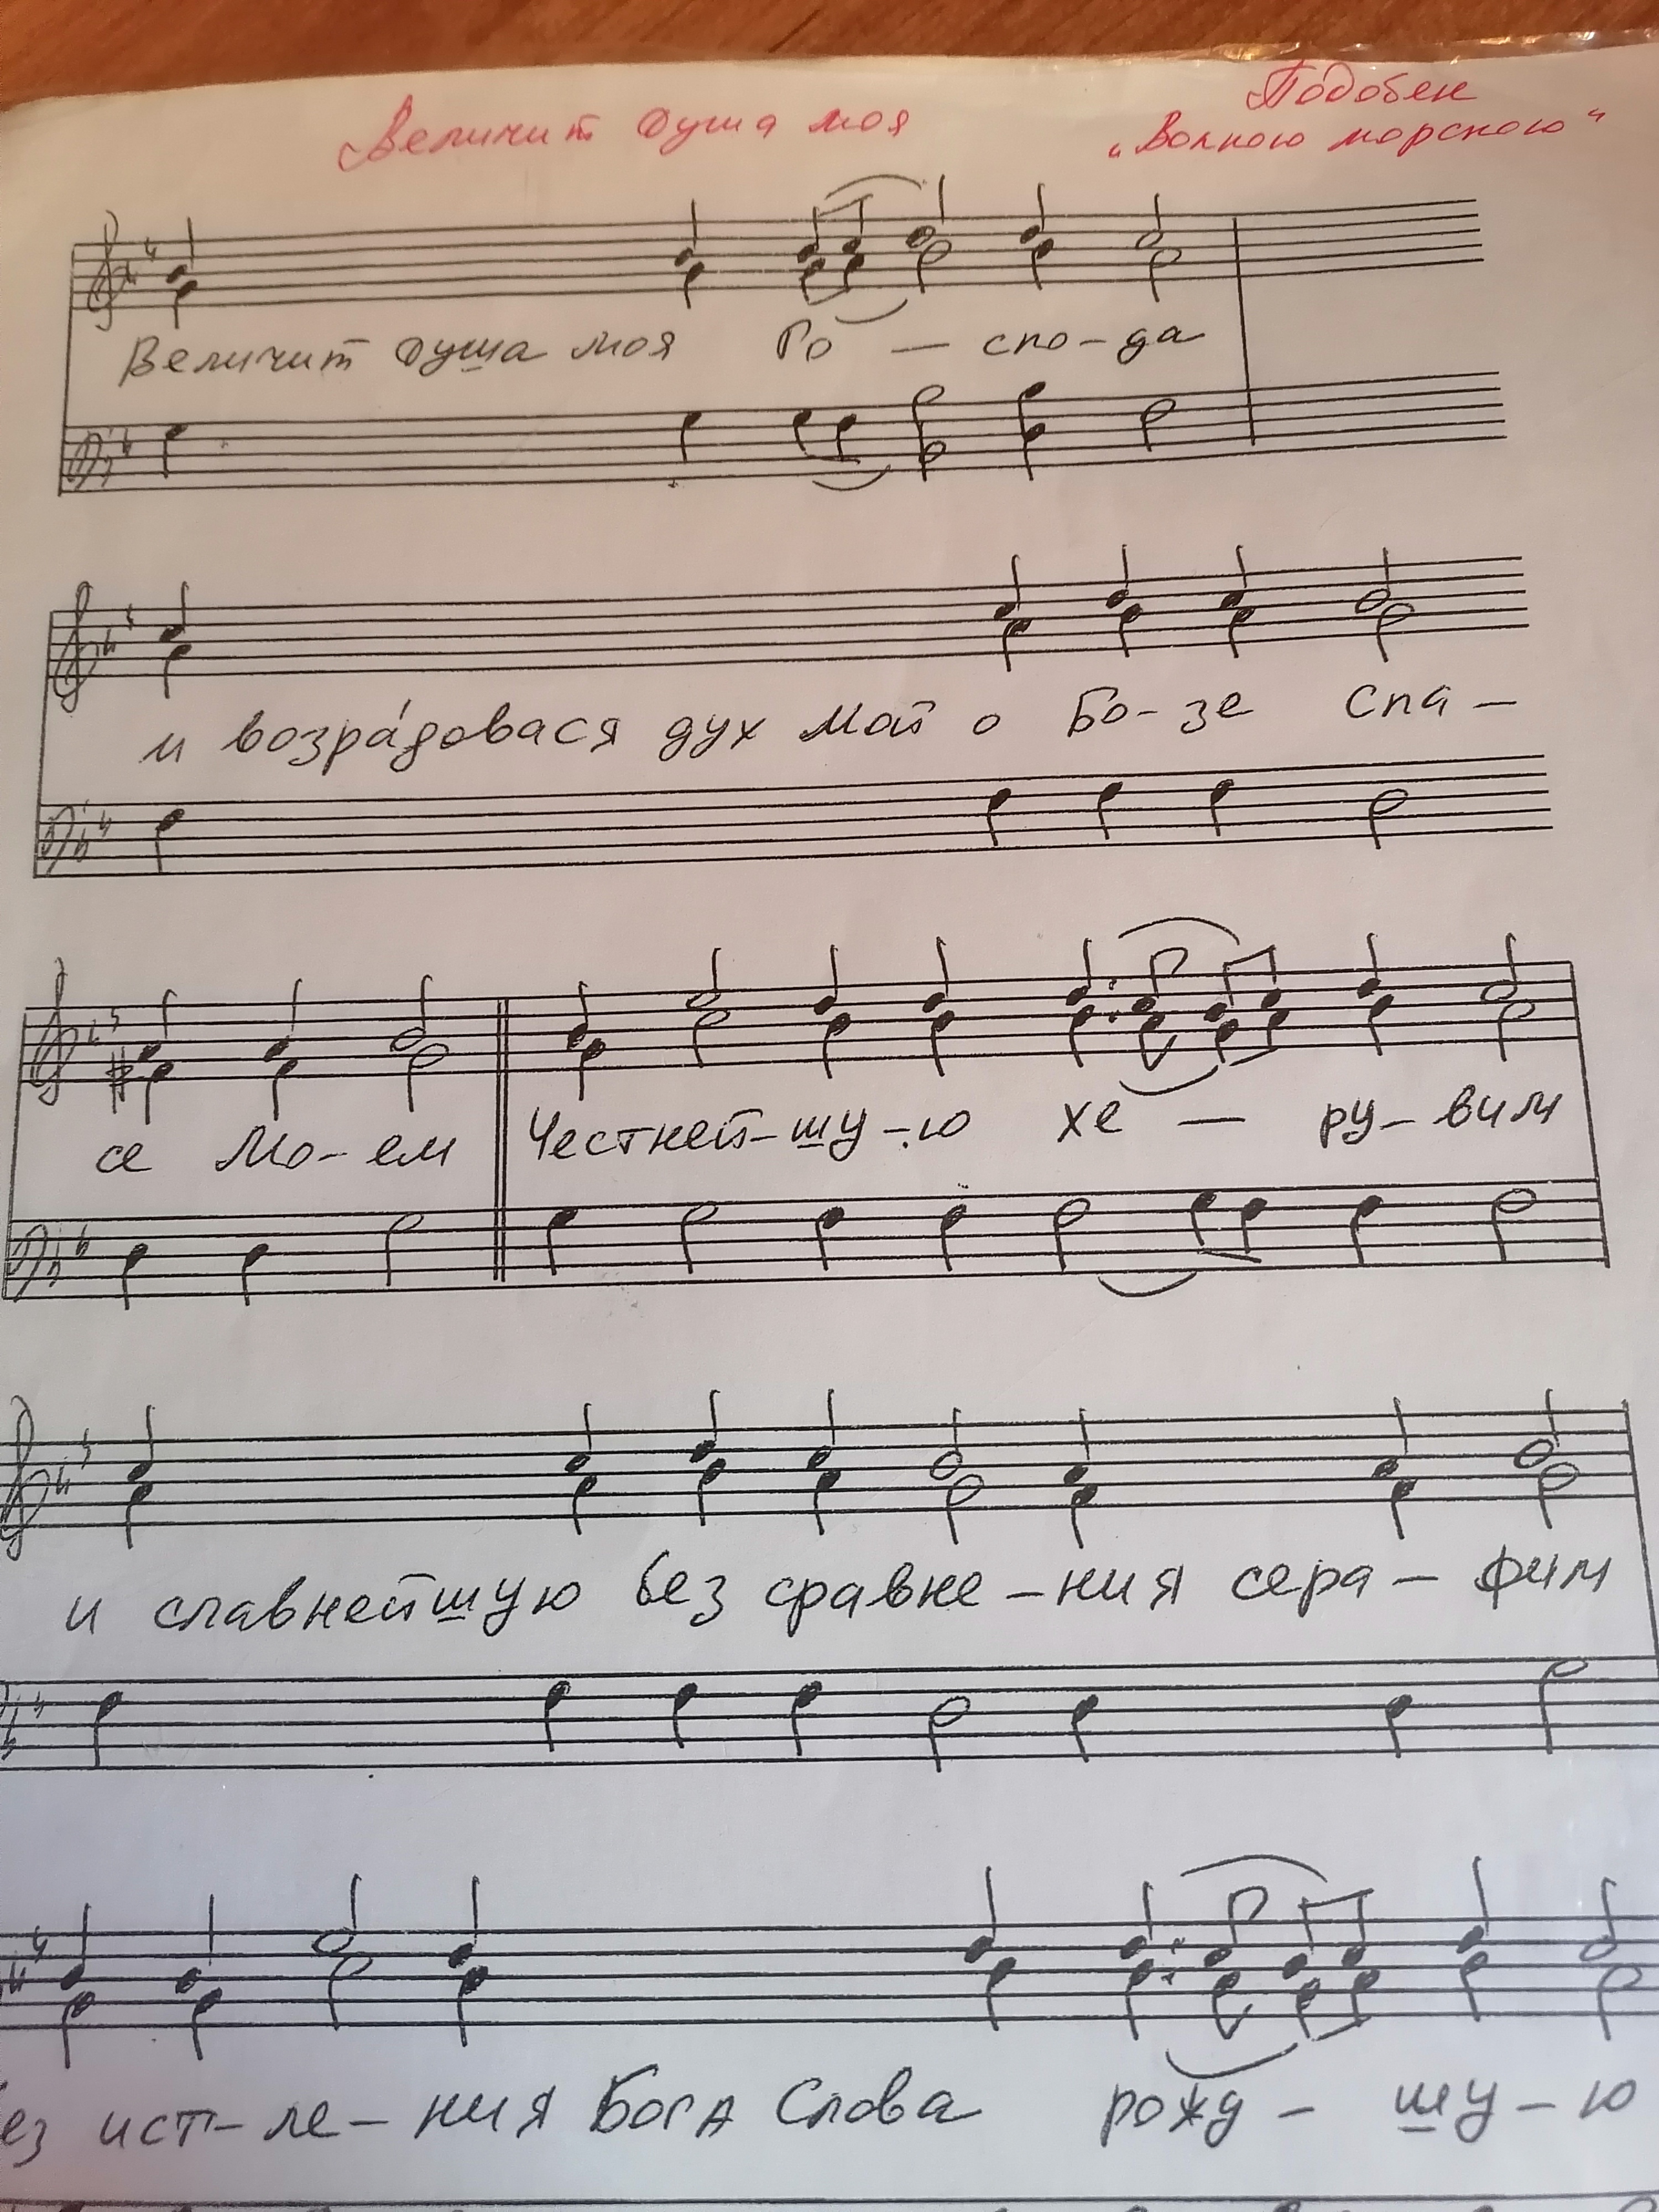 Величит душа моя
Подобен
„Волною морскою“
Величит душа моя Го — спо-да
и возра́довася дух мой о Бо-зе спа-
се Мо-ем Честней-шу-ю хе — ру-вим
и славнейшую без сравне-ния сера-фим
ез ист-ле-ния Бога Слова рожд - шу-ю